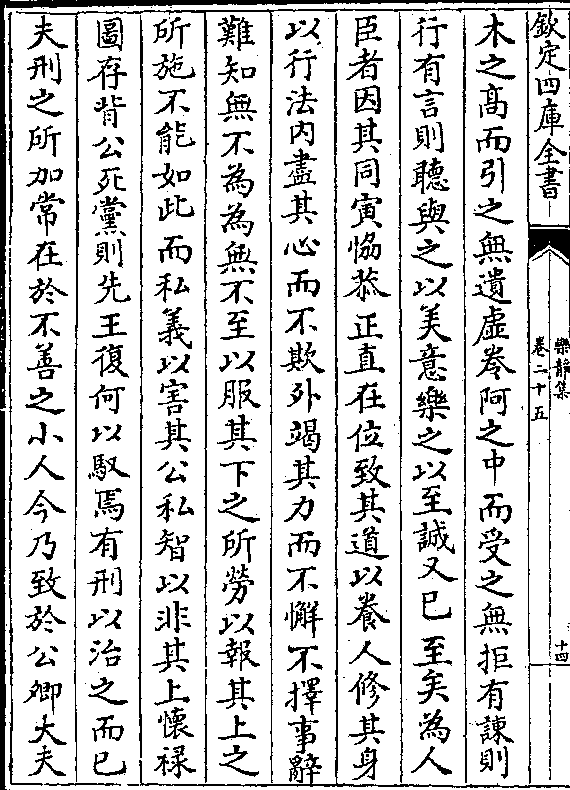 欽定四庫全書
樂靜集
卷二十五
十四
木之高而引之無遺虛卷阿之中而受之無拒有諫則
行有言則聽與之以美意樂之以至誠又已至矣為人
臣者因其同寅恊恭正直在位致其道以養人修其身
以行法内盡其心而不欺外竭其力而不懈不擇事辭
難知無不為為無不至以服其下之所勞以報其上之
所施不能如此而私義以害其公私智以非其上懷禄
圖存背公死黨則先王復何以馭焉有刑以治之而已
夫刑之所加常在於不善之小人今乃致於公卿大夫